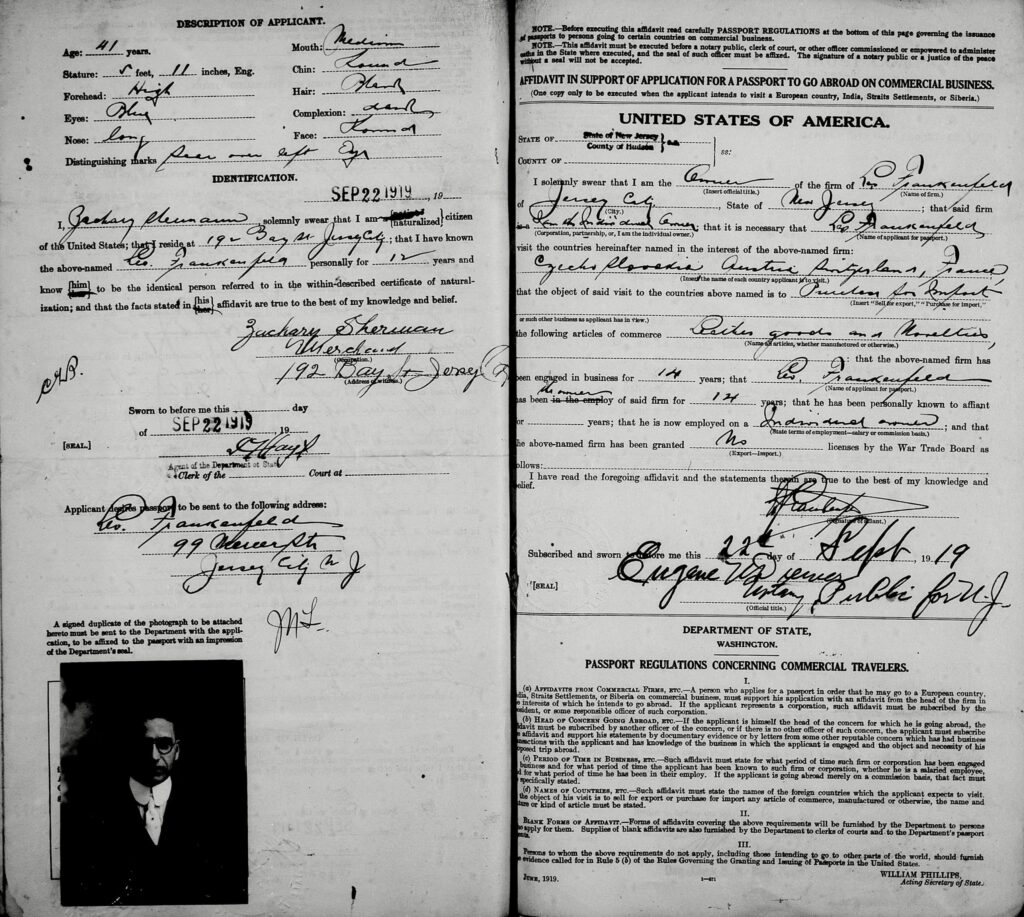 DESCRIPTION OF APPLICANT.
Age: 41 years.
Mouth: Medium
Stature: 5 feet, 11 inches, Eng.
Chin: Round
Forehead: High
Hair: Black
Eyes: Blue
Complexion: dark
Nose: long
Face: Round
Distinguishing marks Scar over left Eye
IDENTIFICATION.
SEP 22 1919, 19
I, Zachary Sherman, solemnly swear that I am a (naturalized) citizen
of the United States; that I reside at 192 Bay St Jersey City; that I have known
the above-named Leo. Frankenfeld personally for 12 years and
know {him} to be the identical person referred to in the within-described certificate of natural-
ization; and that the facts stated in {his/her} affidavit are true to the best of my knowledge and belief.
Zachary Sherman
Merchant
(Occupation.)
192 Bay St Jersey City
(Address of witness.)
Sworn to before me this day
of SEP 22 1919, 19
[SEAL.]
Agent of the Department of State
Clerk of the Court at
Applicant desires passport to be sent to the following address:
Leo. Frankenfeld
99 Mercer Str
Jersey City N J
A signed duplicate of the photograph to be attached
hereto must be sent to the Department with the appli-
cation, to be affixed to the passport with an impression
of the Department's seal.
NOTE.—Before executing this affidavit read carefully PASSPORT REGULATIONS at the bottom of this page governing the issuance
of passports to persons going to certain countries on commercial business.
NOTE.—This affidavit must be executed before a notary public, clerk of court, or other officer commissioned or empowered to administer
oaths in the State where executed, and the seal of such officer must be affixed. The signature of a notary public or a justice of the peace
without a seal will not be accepted.
AFFIDAVIT IN SUPPORT OF APPLICATION FOR A PASSPORT TO GO ABROAD ON COMMERCIAL BUSINESS.
(One copy only to be executed when the applicant intends to visit a European country, India, Straits Settlements, or Siberia.)
UNITED STATES OF AMERICA.
STATE OF State of New Jersey
County of Hudson } ss
COUNTY OF ss:
I solemnly swear that I am the Owner of the firm of Leo. Frankenfeld
(Insert official title.) (Name of firm.)
of Jersey City, State of New Jersey; that said firm
(City.)
I am the Individual Owner; that it is necessary that Leo Frankenfeld
(Corporation, partnership, or, I am the individual owner.) (Name of applicant for passport.)
visit the countries hereinafter named in the interest of the above-named firm:
Czecho Slovakia Austria Switzerland, France,
(Insert the name of each country applicant is to visit.)
that the object of said visit to the countries above named is to Purchase for Import
(Insert "Sell for export," "Purchase for import,"
or such other business as applicant has in view.)
the following articles of commerce Leather goods and Novelties,
(Name of articles, whether manufactured or otherwise.)
: that the above-named firm has
been engaged in business for 14 years; that Leo. Frankenfeld
(Name of applicant for passport.)
has been the owner in the employ of said firm for 14 years; that he has been personally known to affiant
for years; that he is now employed on a Individual owner; and that
(State terms of employment—salary or commission basis.)
the above-named firm has been granted No licenses by the War Trade Board as
(Export—Import.)
follows:
I have read the foregoing affidavit and the statements therein are true to the best of my knowledge and
belief.
(Signature of affiant.)
Subscribed and sworn to before me this 22d day of Sept 1919
Eugene
[SEAL] Notary Public for N.J.
(Official title.)
DEPARTMENT OF STATE,
WASHINGTON.
PASSPORT REGULATIONS CONCERNING COMMERCIAL TRAVELERS.
I.
(a) AFFIDAVITS FROM COMMERCIAL FIRMS, ETC.—A person who applies for a passport in order that he may go to a European country,
India, Straits Settlements, or Siberia on commercial business, must support his application with an affidavit from the head of the firm in
the interests of which he intends to go abroad. If the applicant represents a corporation, such affidavit must be subscribed by the
president, or some responsible officer of such corporation.
(b) HEAD OF CONCERN GOING ABROAD, ETC.—If the applicant is himself the head of the concern for which he is going abroad, the
affidavit must be subscribed by another officer of the concern, or if there is no other officer of such concern, the applicant must subscribe
the affidavit and support his statements by documentary evidence or by letters from some other reputable concern which has had business
transactions with the applicant and has knowledge of the business in which the applicant is engaged and the object and necessity of his
proposed trip abroad.
(c) PERIOD OF TIME IN BUSINESS, ETC.—Such affidavit must state for what period of time such firm or corporation has been engaged
in business and for what period of time the applicant has been known to such firm or corporation, whether he is a salaried employee,
and for what period of time he has been in their employ. If the applicant is going abroad merely on a commission basis, that fact must
be specifically stated.
(d) NAMES OF COUNTRIES, ETC.—Such affidavit must state the names of the foreign countries which the applicant expects to visit.
If the object of his visit is to sell for export or purchase for import any article of commerce, manufactured or otherwise, the name and
nature or kind of article must be stated.
II.
BLANK FORMS OF AFFIDAVIT.—Forms of affidavit covering the above requirements will be furnished by the Department to persons
who apply for them. Supplies of blank affidavits are also furnished by the Department to clerks of courts and to the Department's passport
agents.
III.
Persons to whom the above requirements do not apply, including those intending to go to other parts of the world, should furnish
the evidence called for in Rule 5 (b) of the Rules Governing the Granting and Issuing of Passports in the United States.
WILLIAM PHILLIPS,
Acting Secretary of State.
JUNE, 1919.